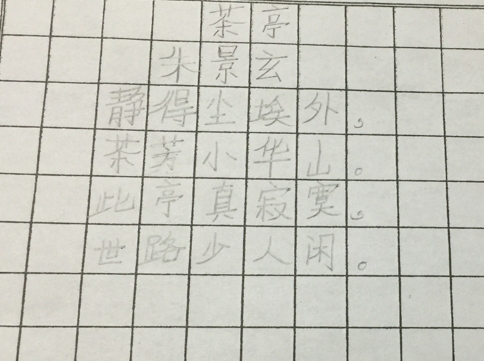 茶亭
朱景玄
静得尘埃外，
茶芳小华山。
此亭真寂寞，
世路少人闲。